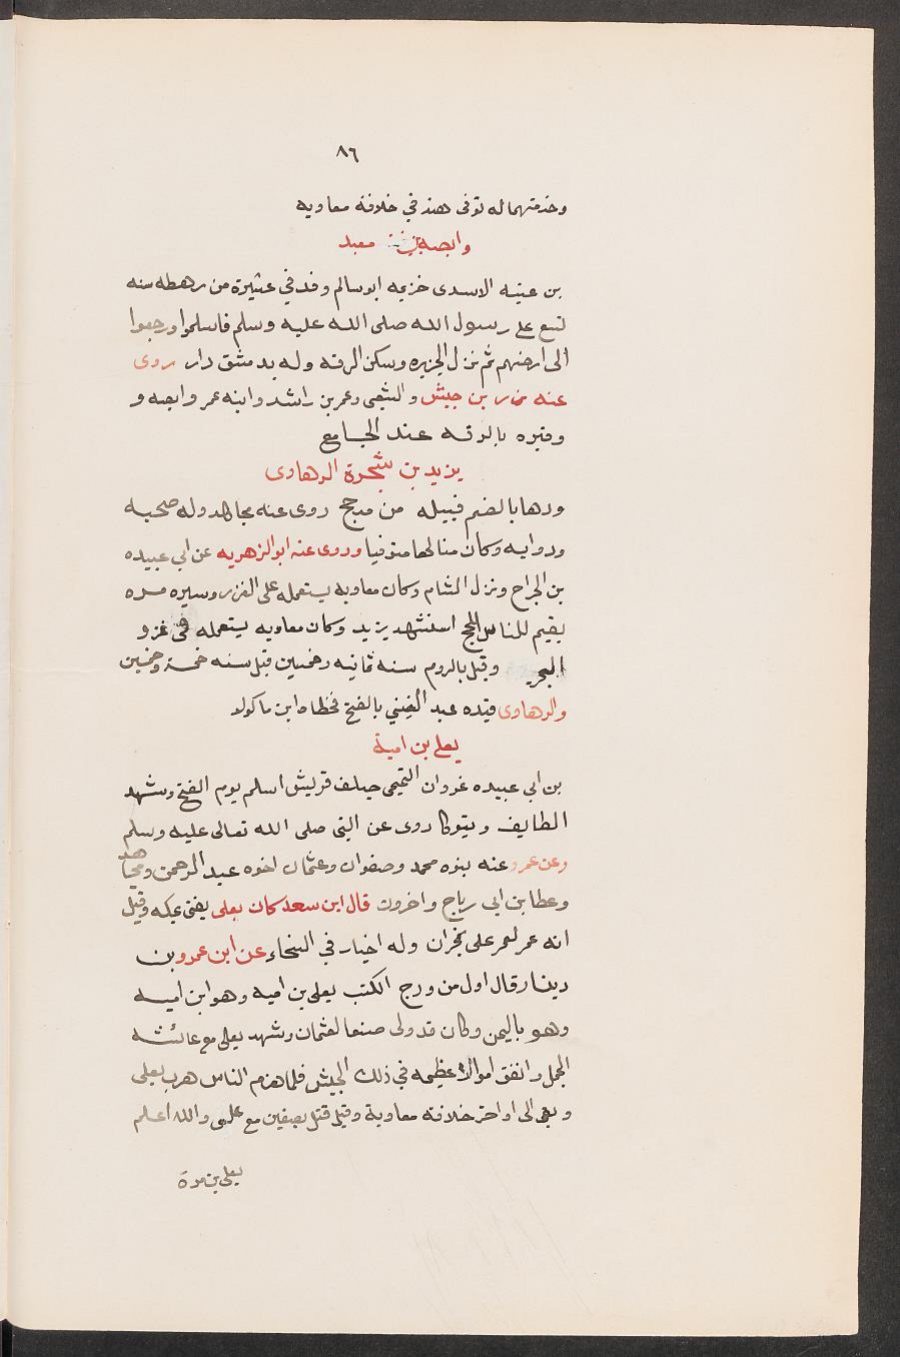 ٨٦
وخدمتهما له توفى هند في خلافة معاويه
وابصه بن معبد
بن عتبه الاسدى خزيمه ابو سالم وفد في عشيرة من رهطه سنه
تسع على رسول الله صلى الله عليه وسلم فاسلموا ورجعوا
الى ارضهم ثم نزل الجزيره وسكن الرقه وله بدمشق دار روى
عنه زر بن حبيش والشعبى وعمر بن راشد وابنه عمر وابصه و
وقبره بالرقه عند الجامع
يزيد بن شجرة الرهاوى
ورها بالضم قبيله من مذحج روى عنه مجاهد وله صحبه
وروايه وكان متالها متوقيا وروى عنه ابو الزهريه عن ابي عبيده
بن الجراح ونزل الشام وكان معاويه يستعمله على الغزر وسيره مره
يقيم للناس الحج استشهد يزيد وكان معاويه يستعمله في غزو
البحر وقبل بالروم سنه ثمانيه وخمسين قبل سنه خمسة وخمسين
والرهاوى قيده عبد الغني بالفتح فخطاه ابن ماكولا
يعلى بن امية
بن ابي عبيده غزوان التميمى حيلف قريش اسلم يوم الفتح وشهد
الطايف وتبوكا روى عن النبى صلى الله تعالى عليه وسلم
وعن عمر وعنه بنوه محمد وصفوان وعثمان اخوه عبد الرحمن ومجاهد
وعطا بن ابي رباح واخرون قال ابن سعد كان يعلى يفتى بمكه وقيل
انه عمر لعمر على نجران وله اخبار في السخاء عن ابن عمرو بن
دينار قال اول من ورخ الكتب يعلى بن اميه وهو ابن اميه
وهو باليمن وكان قد ولى صنعا لعثمان وشهد يعلى مع عائشه
الجمل وانفق اموالا عظيمه في ذلك الجيش فلما هزم الناس هرب يعلى
وبقى الى اواخر خلافة معاوية وقيل قتل بصفين مع على والله اعلم
يعلى بن مرة